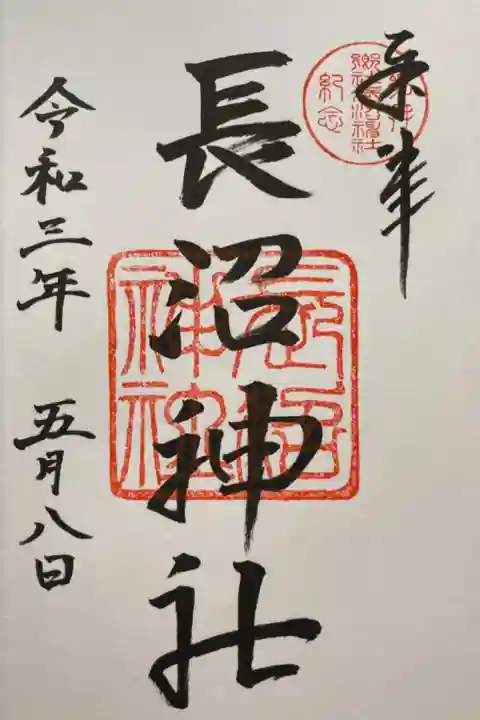 奉拝
紀念
長沼神社
長沼神社
令和三年 五月八日